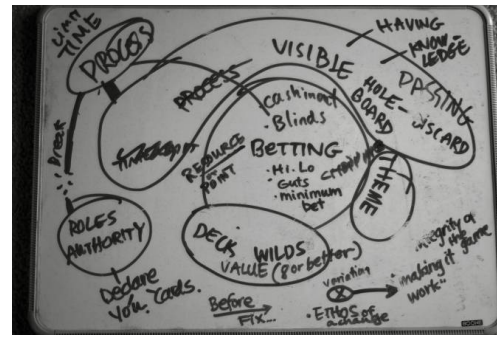 LIMIT
TIME
PROCESS
HAVING
KNOW-
LEDGE
VISIBLE
PASSING
PROCESS
HOLE-
BOARD
DISCARD
cashiment
• Blinds
BETTING
• Hi. Lo
Guts
• minimum
bet
RESOURCE
or
POINT
THEME
ROLES
AUTHORITY
DECK
WILDS
VALUE (8 or better)
Declare
you, cards.
Before
FIX...
variation
• ETHOS of
a change
integrity of
the game
"making it
work"